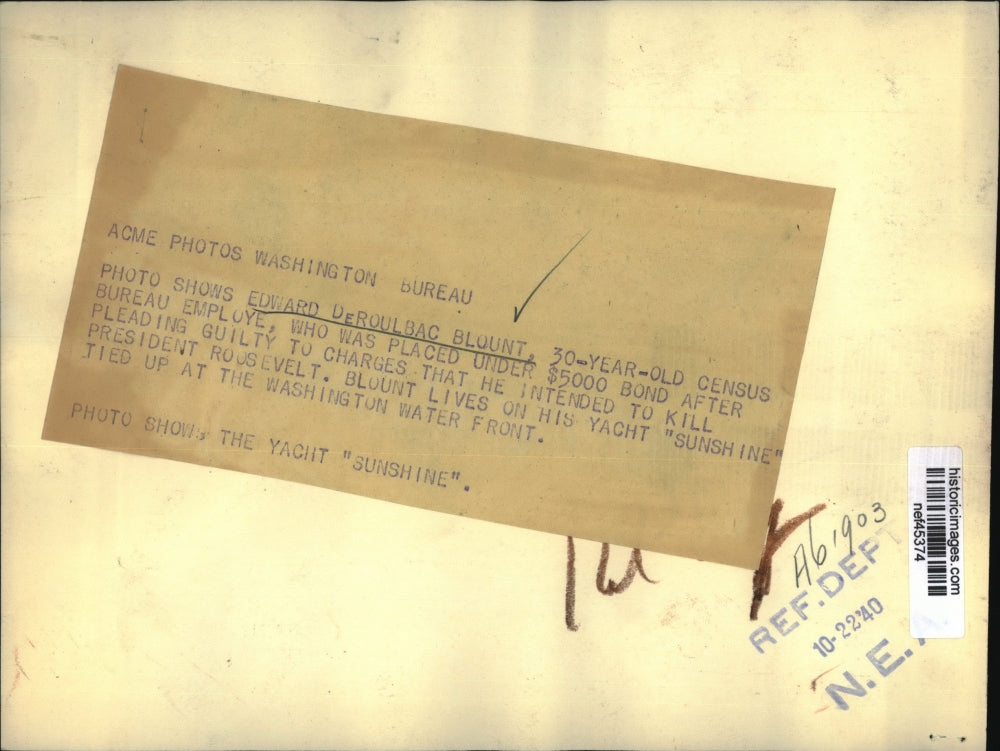 ACME PHOTOS WASHINGTON BUREAU
PHOTO SHOWS EDWARD DEROULBAC BLOUNT, 30-YEAR-OLD CENSUS
BUREAU EMPLOYE, WHO WAS PLACED UNDER $5000 BOND AFTER
PLEADING GUILTY TO CHARGES THAT HE INTENDED TO KILL
PRESIDENT ROOSEVELT. BLOUNT LIVES ON HIS YACHT "SUNSHINE"
TIED UP AT THE WASHINGTON WATER FRONT.
PHOTO SHOWS THE YACHT "SUNSHINE".
A61903
REF. DEPT
10-22'40
N.E.A.
historicimages.com
nef45374